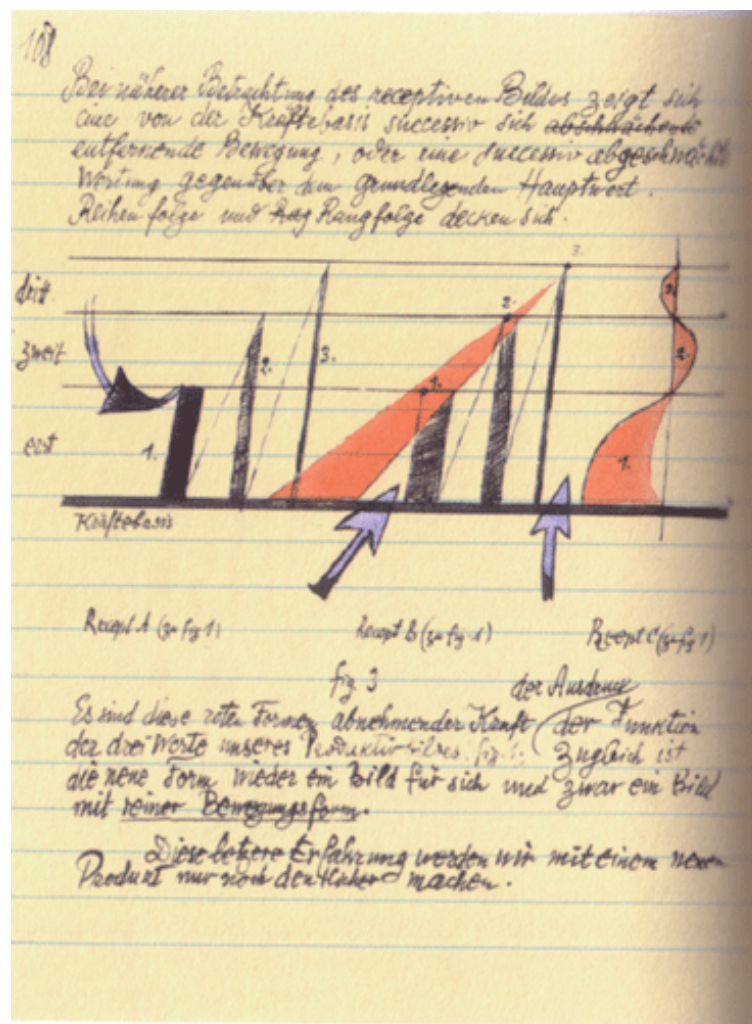 108
Bei näherer Betrachtung des receptiven Bildes zeigt sich
eine von der Kräftebasis successiv sich abschwächende
entfernende Bewegung, oder eine successiv abgeschwächte
Wertung gegenüber dem grundlegenden Hauptwert.
Reihenfolge und Rag Rangfolge decken sich.
3.
dritt
3.
2.
zweit
2.
3.
2.
1.
erst
1.
1.
Kräftebasis
Recept A (zu fig 1)
Recept B (zu fig. 1)
Recept C (zu fig 1)
fig. 3
der Ausdruck
Es sind diese roten Formen abnehmender Kraft der Funktion
der drei Werte unseres Produktivbildes fig. 1; Zugleich ist
die neue Form wieder ein Bild für sich und zwar ein Bild
mit reiner Bewegungsform.
Diese letzere Erfahrung werden wir mit einem neuen
Produkt nur noch machen.